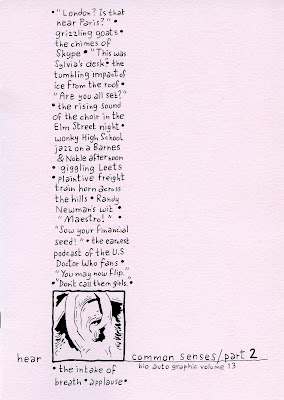 • "London? Is that
near Paris?" •
grizzling goats •
the chimes of
Skype • "This was
Sylvia's desk • the
tumbling impact of
ice from the roof •
"Are you all set?"
• the rising sound
of the choir in the
Elm Street night •
wonky High School
jazz on a Barnes
& Noble afternoon
• giggling Leets
• plaintive freight
train horn across
the hills • Randy
Newman's wit •
"Maestro!" •
"Sow your financial
seed!" • the earnest
podcast of the U.S
Doctor Who fans •
"You may now flip."
• "Don't call them girls." •
hear
common senses/part 2
bio auto graphic volume 13
• the intake of
breath • applause •